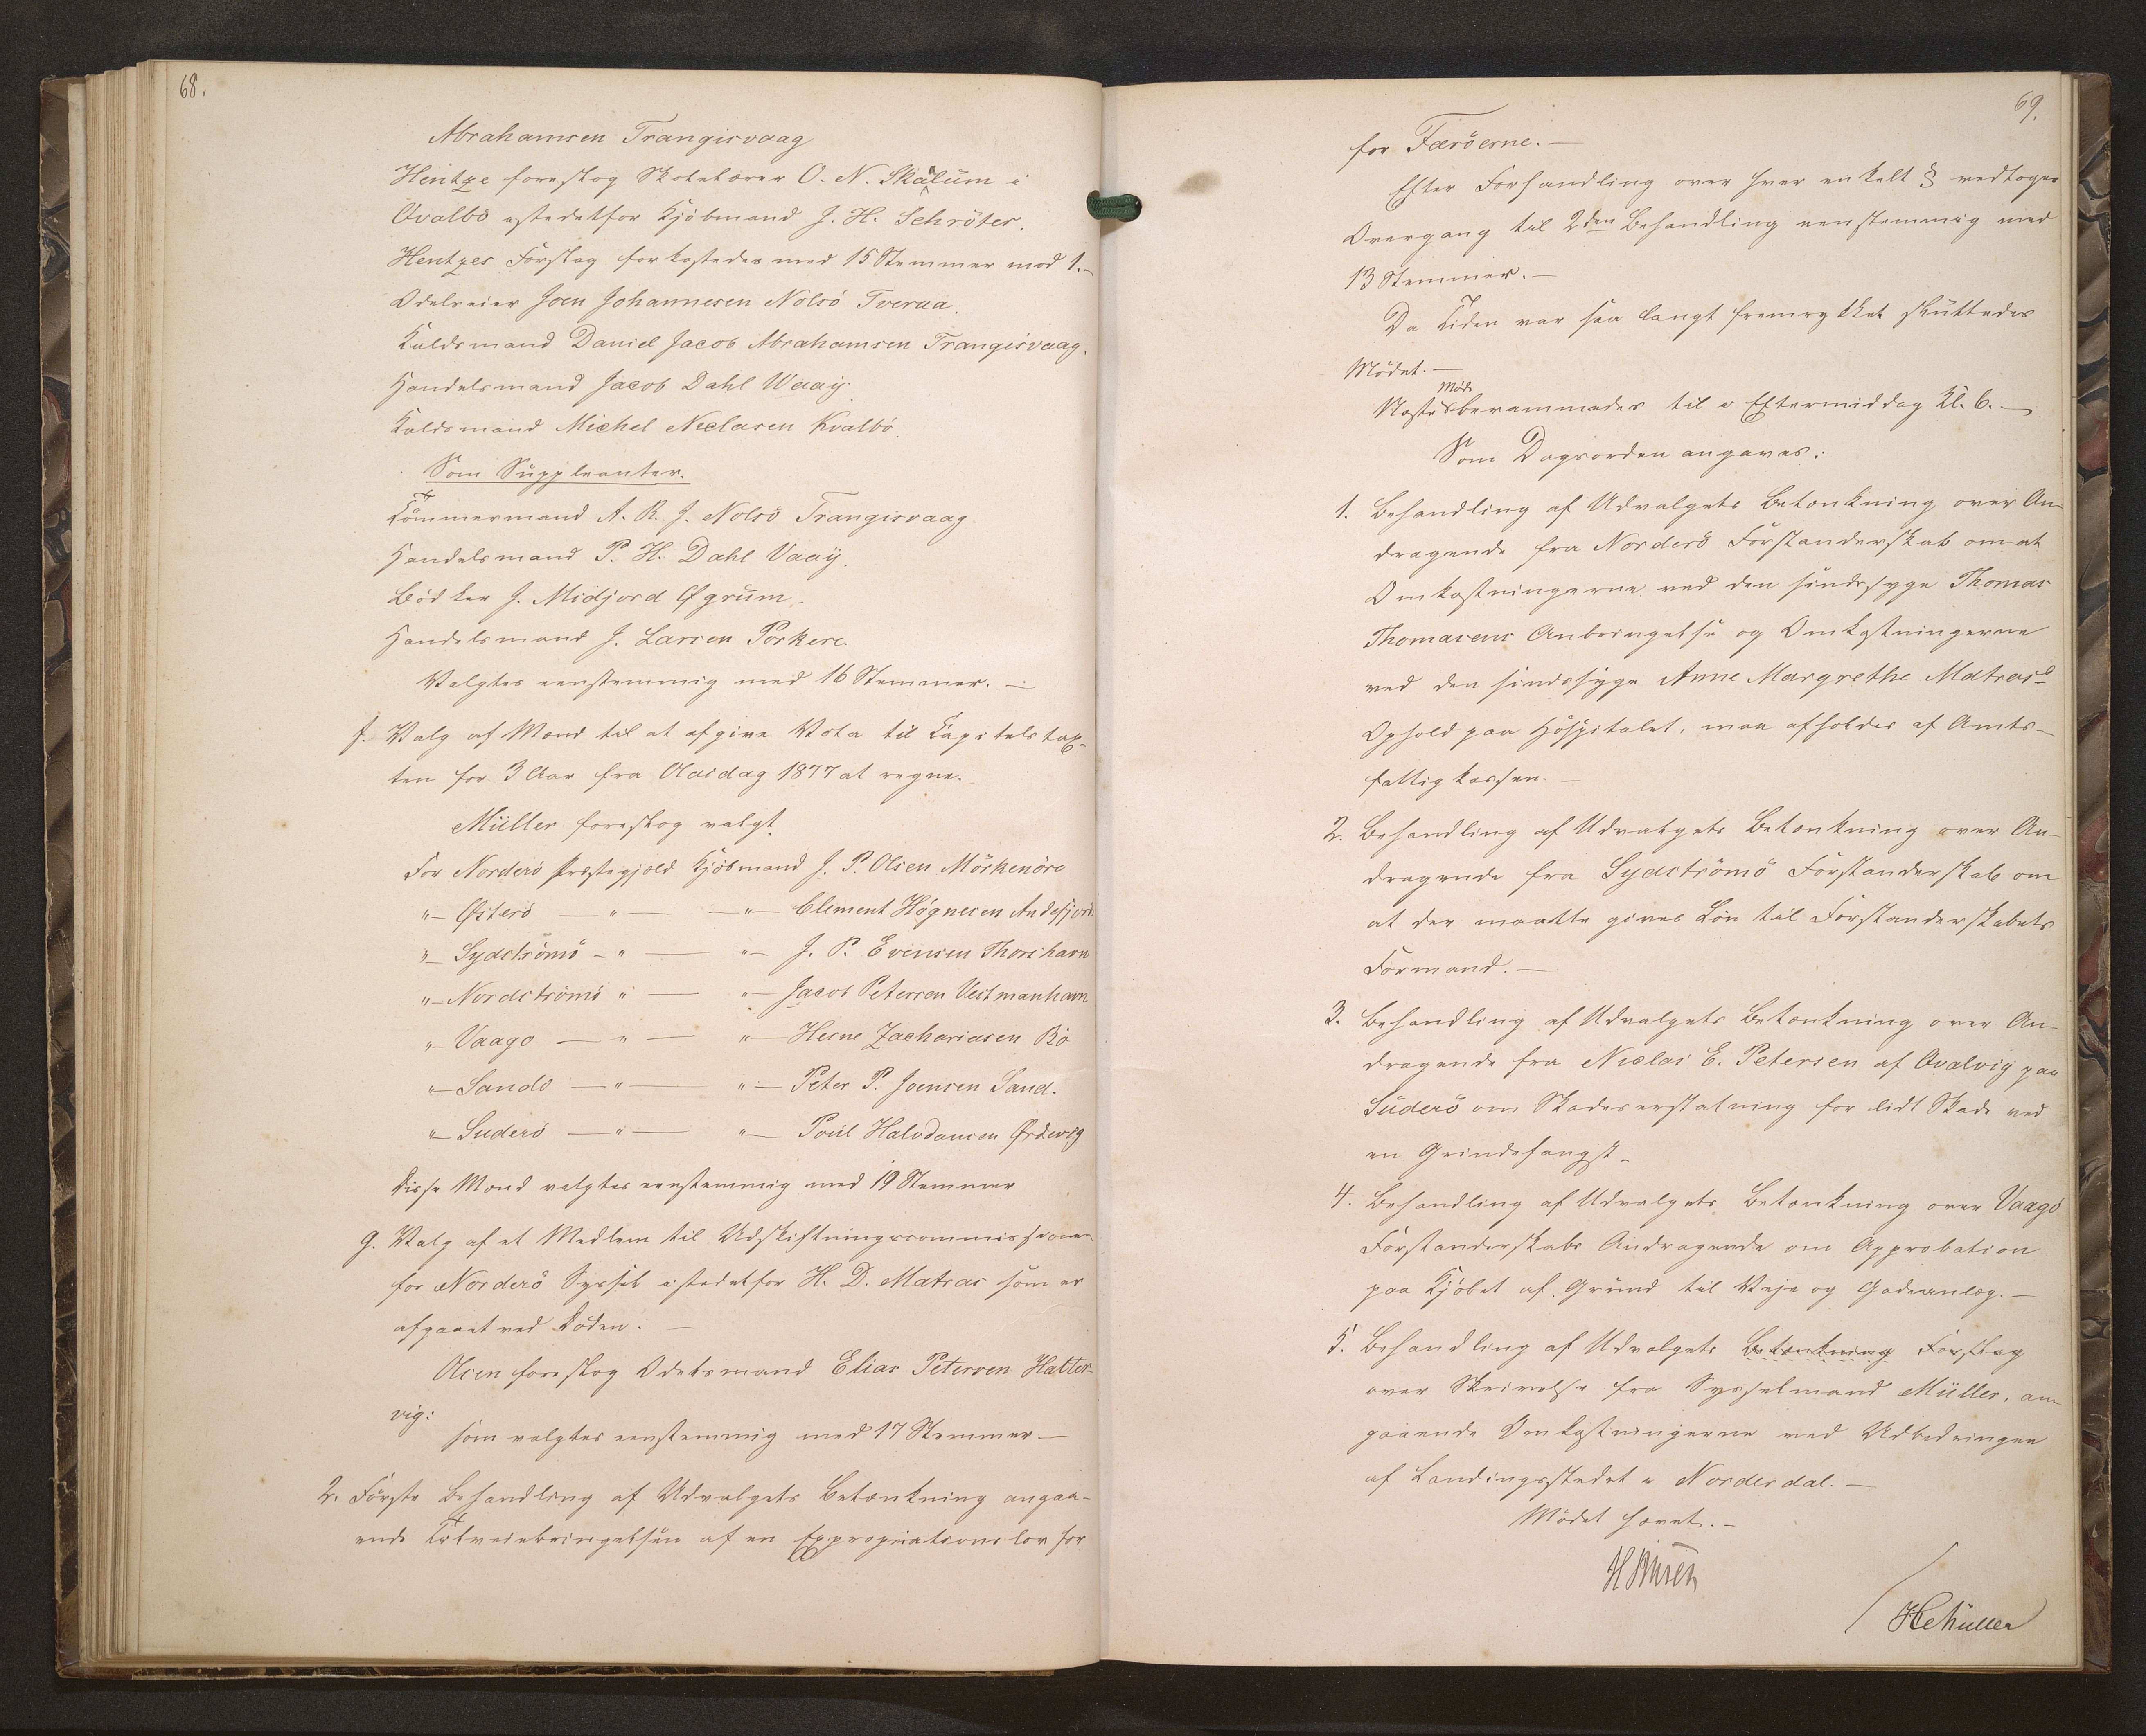 68.
Abrahamsen Trangisvaag
Hentze foreslog Skolelærer O. N. Skaalum i
Qvalbø istedetfor Kjöbmand J. H. Schröter.
Hentzes Forslag forkastedes med 15 Stemmer mod 1.–
Odelseier Joen Johannesen Nolsö Tveraa.
Kuldsmand Daniel Jacob Abrahamsen Trangisvaag.
Handelsmand Jacob Dahl Waaij.
Kuldsmand Michel Niclasen Kvalbö.
Som Suppleanter.
Tömmermand A. R. J. Nolsö Trangisvaag
Handelsmand P. H. Dahl Vaaij.
Bödker J. Midjord Øgrum.
Handelsmand J. Larsen Porkere
Valgtes eenstemmig med 16 Stemmer. —
f. Valg af Mænd til at afgive Vota til Kapitelstax-
ten for 3 Aar fra Olaidag 1877 at regne.
Müller foreslog valgt
For Norderö Præstegjeld Kjöbmand J. P. Olsen Mörkenöre
"– Østerö — " — — " — Clement Högnesen Andefjord
"– Sydströmö – " — " — J. P. Evensen Thorshavn
"– Nordströmö " — " — Jacob Petersen Vestmanhavn
"– Vaagö — " — " — Hesne Zachariasen Bö
"– Sandö — " — " — Peter P. Joensen Sand.
"– Suderö — " — " — Poul Halvdansen Ørdevig
Disse Mænd valgtes eenstemmig med 19 Stemmer
g. Valg af et Medlem til Udskiftningscommissionen
for Norderö Syssel istedetfor H. D. Matras som er
afgaaet ved Döden. —
Olsen foreslog Odelsmand Elias Petersen Hatter-
vig:
som valgtes eenstemmig med 17 Stemmer —
2. Förste Behandling af Udvalgets Betænkning angaa-
ende Tilveiebringelsen af en Expropriationslov for
69.
for Færöerne. —
Efter Forhandling over hver enkelt § vedtoges
Overgang til 2den Behandling eenstemmig med
13 Stemmer. —
Da Tiden var saa langt fremrykket sluttedes
Mödet. —
Næste Möde berammedes til i Eftermiddag Kl. 6. —
Som Dagsorden angaves:
1. Behandling af Udvalgets Betænkning over An-
dragende fra Norderö Forstanderskab om at
Omkostningerne ved den sindssyge Thomas
Thomasens Anbringelse og Omkostningerne
ved den sindssyge Anne Margrethe Matrasd.
Ophold paa Hospitalet, maa afholdes af Amts-
fattigkassen. —
2. Behandling af Udvalgets Betænkning over An-
dragende fra Sydströmö Forstanderskab om
at der maatte gives Lön til Forstanderskabets
Formand. —
3. Behandling af Udvalgets Betænkning over An-
dragende fra Niclas E. Petersen af Qvalvig paa
Suderö om Skadeserstatning for lidt Skade ved
en Grindefangst –
4. Behandling af Udvalgets Betænkning over Vaagö
Forstanderskabs Andragende om Approbation
paa Kjöbet af Grund til Veje og Gadeanlæg. —
5. Behandling af Udvalgets Betænkning Forslag
over Skrivelse fra Sysselmand Müller, an-
gaaende Omkostningerne ved Udbedringen
af Landingsstedet i Norderdal. —
Mödet hævet. —
HMüller